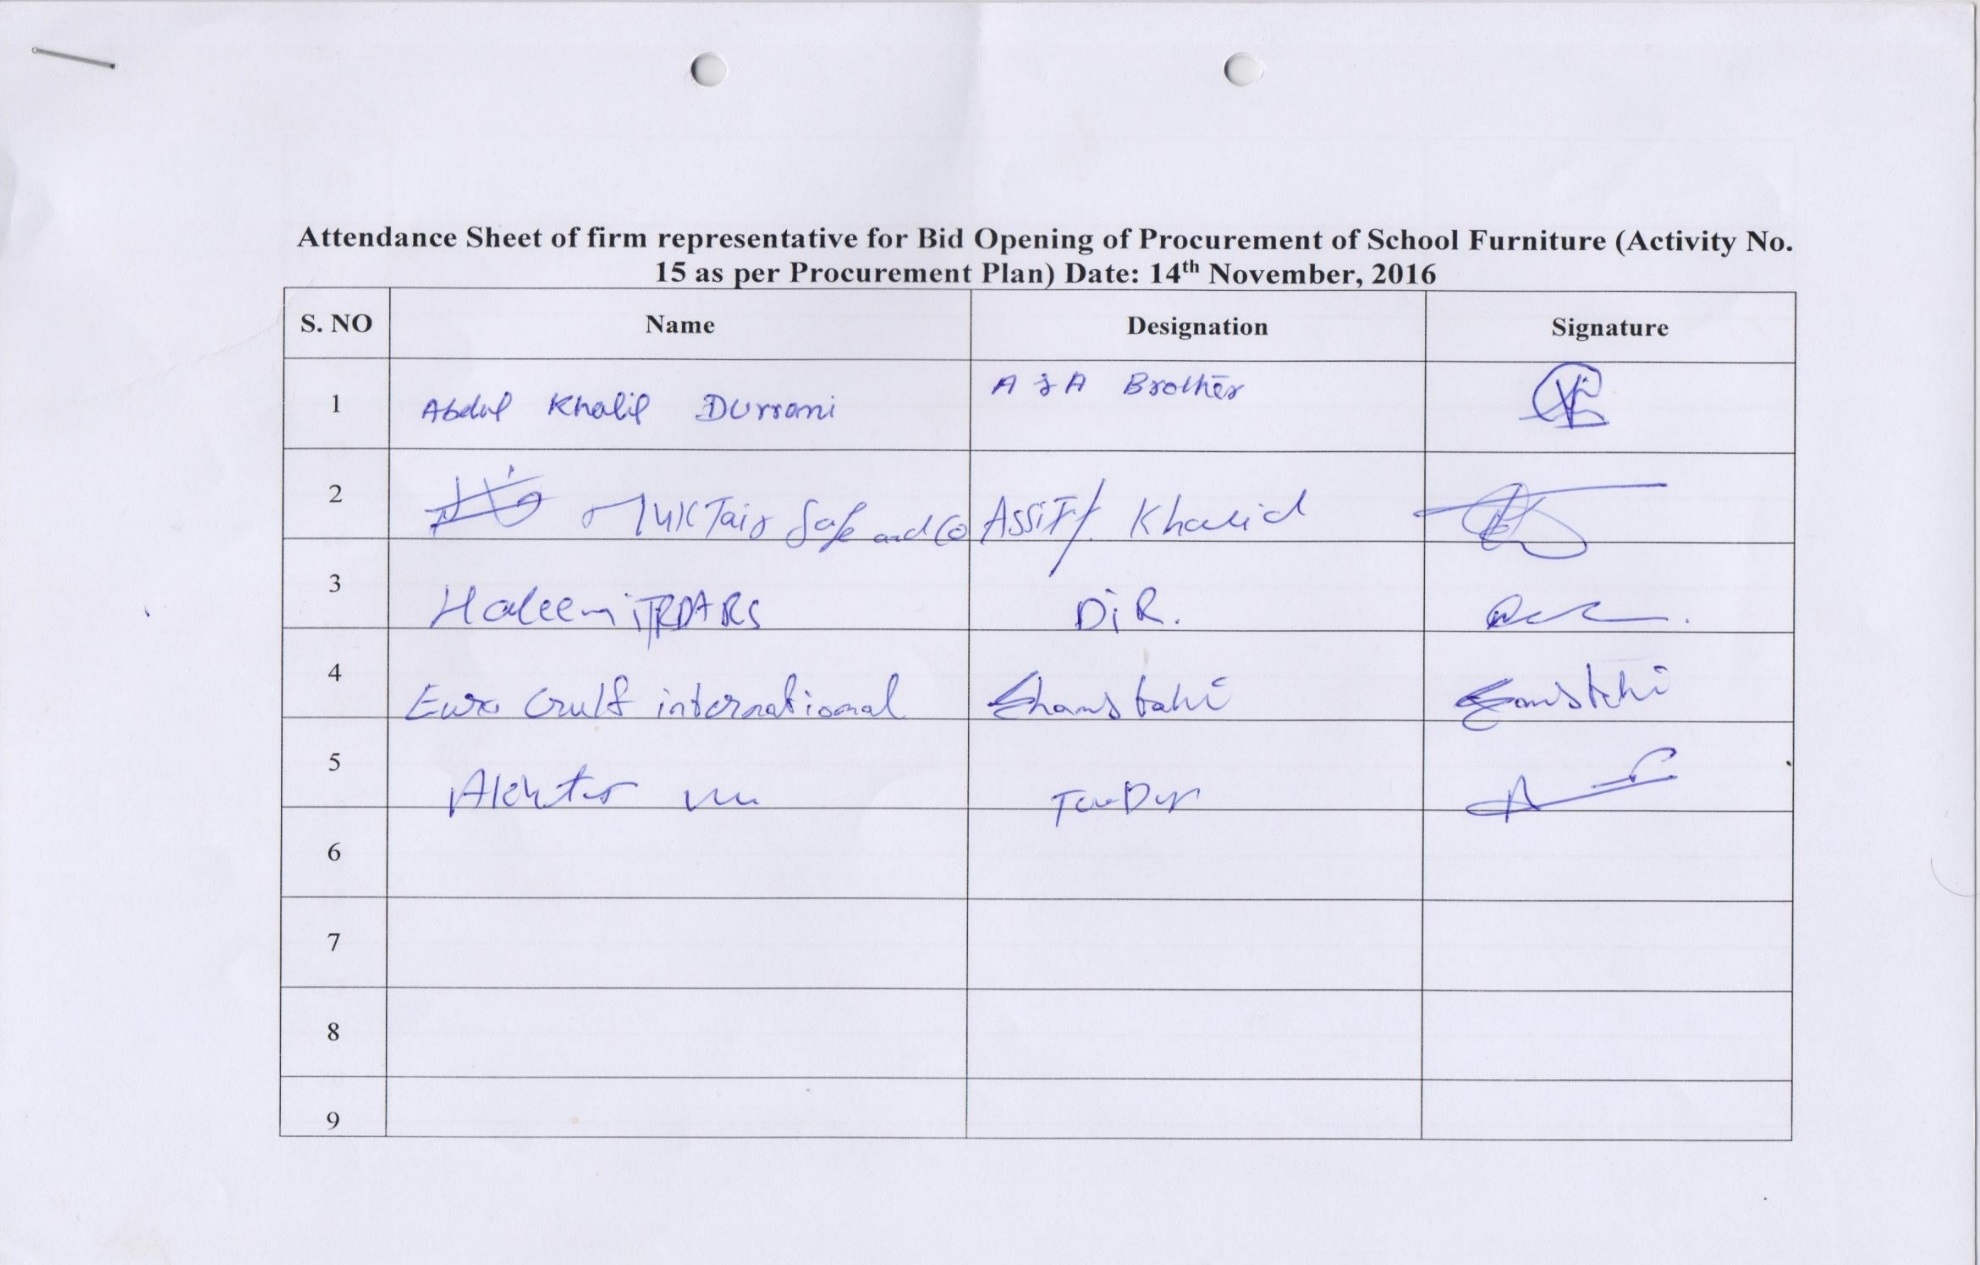 Attendance Sheet of firm representative for Bid Opening of Procurement of School Furniture (Activity No.
15 as per Procurement Plan) Date: 14th November, 2016
S. NO Name Designation Signature
1 Abdul Khalil Durrani A & A Brother
2 Safe and Co Khalid
3 Haleem DiR.
4 Euro Gulf international
5 Akhtar
6
7
8
9